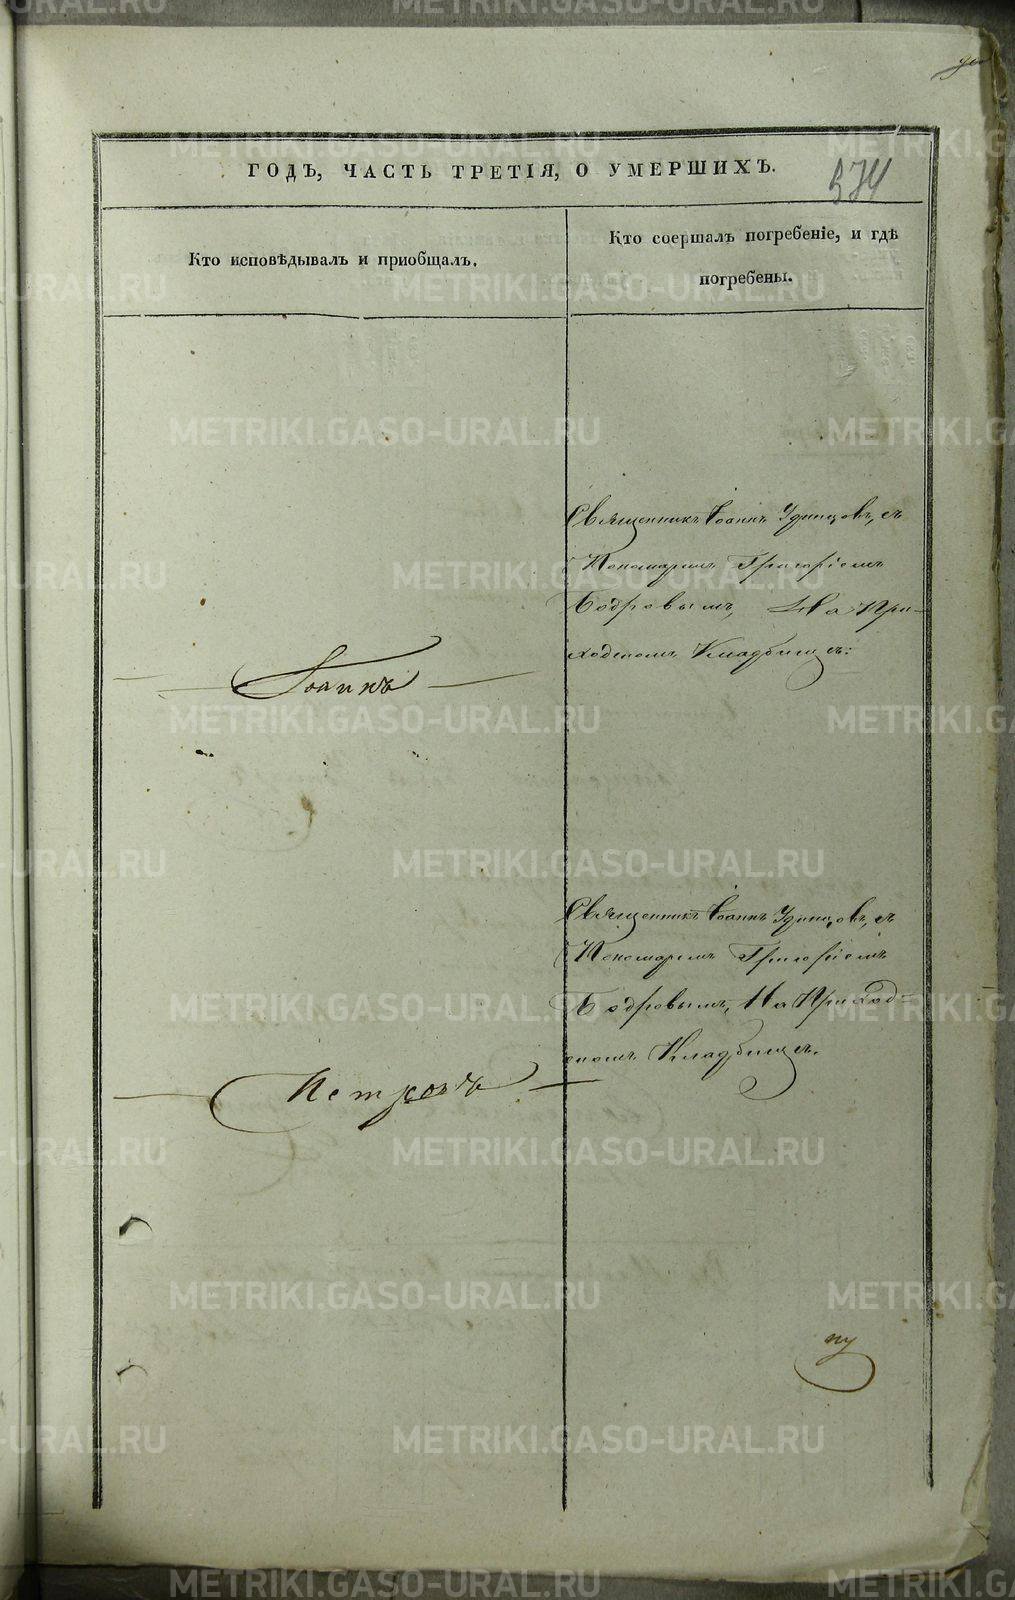 ГОДЪ, ЧАСТЬ ТРЕТІЯ, О УМЕРШИХЪ.
574
Кто исповѣдывалъ и пріобщалъ.
Кто соершалъ погребеніе, и гдѣ
погребены.
Священникъ Іоаннъ Удинцовъ, съ
Пономаремъ Григоріемъ
Бодровымъ, На При-
ходскомъ Кладбищѣ:
Іоаннъ
Священникъ Іоаннъ Удинцовъ, съ
Пономаремъ Григоріемъ
Бодровымъ, На Приход-
скомъ Кладбищѣ.
METRIKI.GASO-URAL.RU